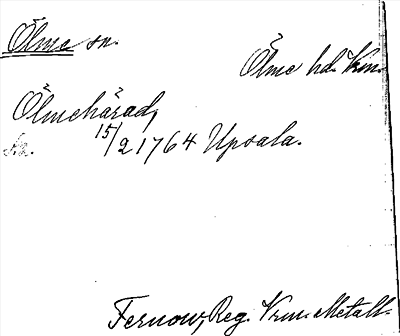 Ölme sn.
Ölme hd. Vrm.
Ölmehärad,
15/2 1764 Upsala.
Fernow, Reg. Vrm. Metall.